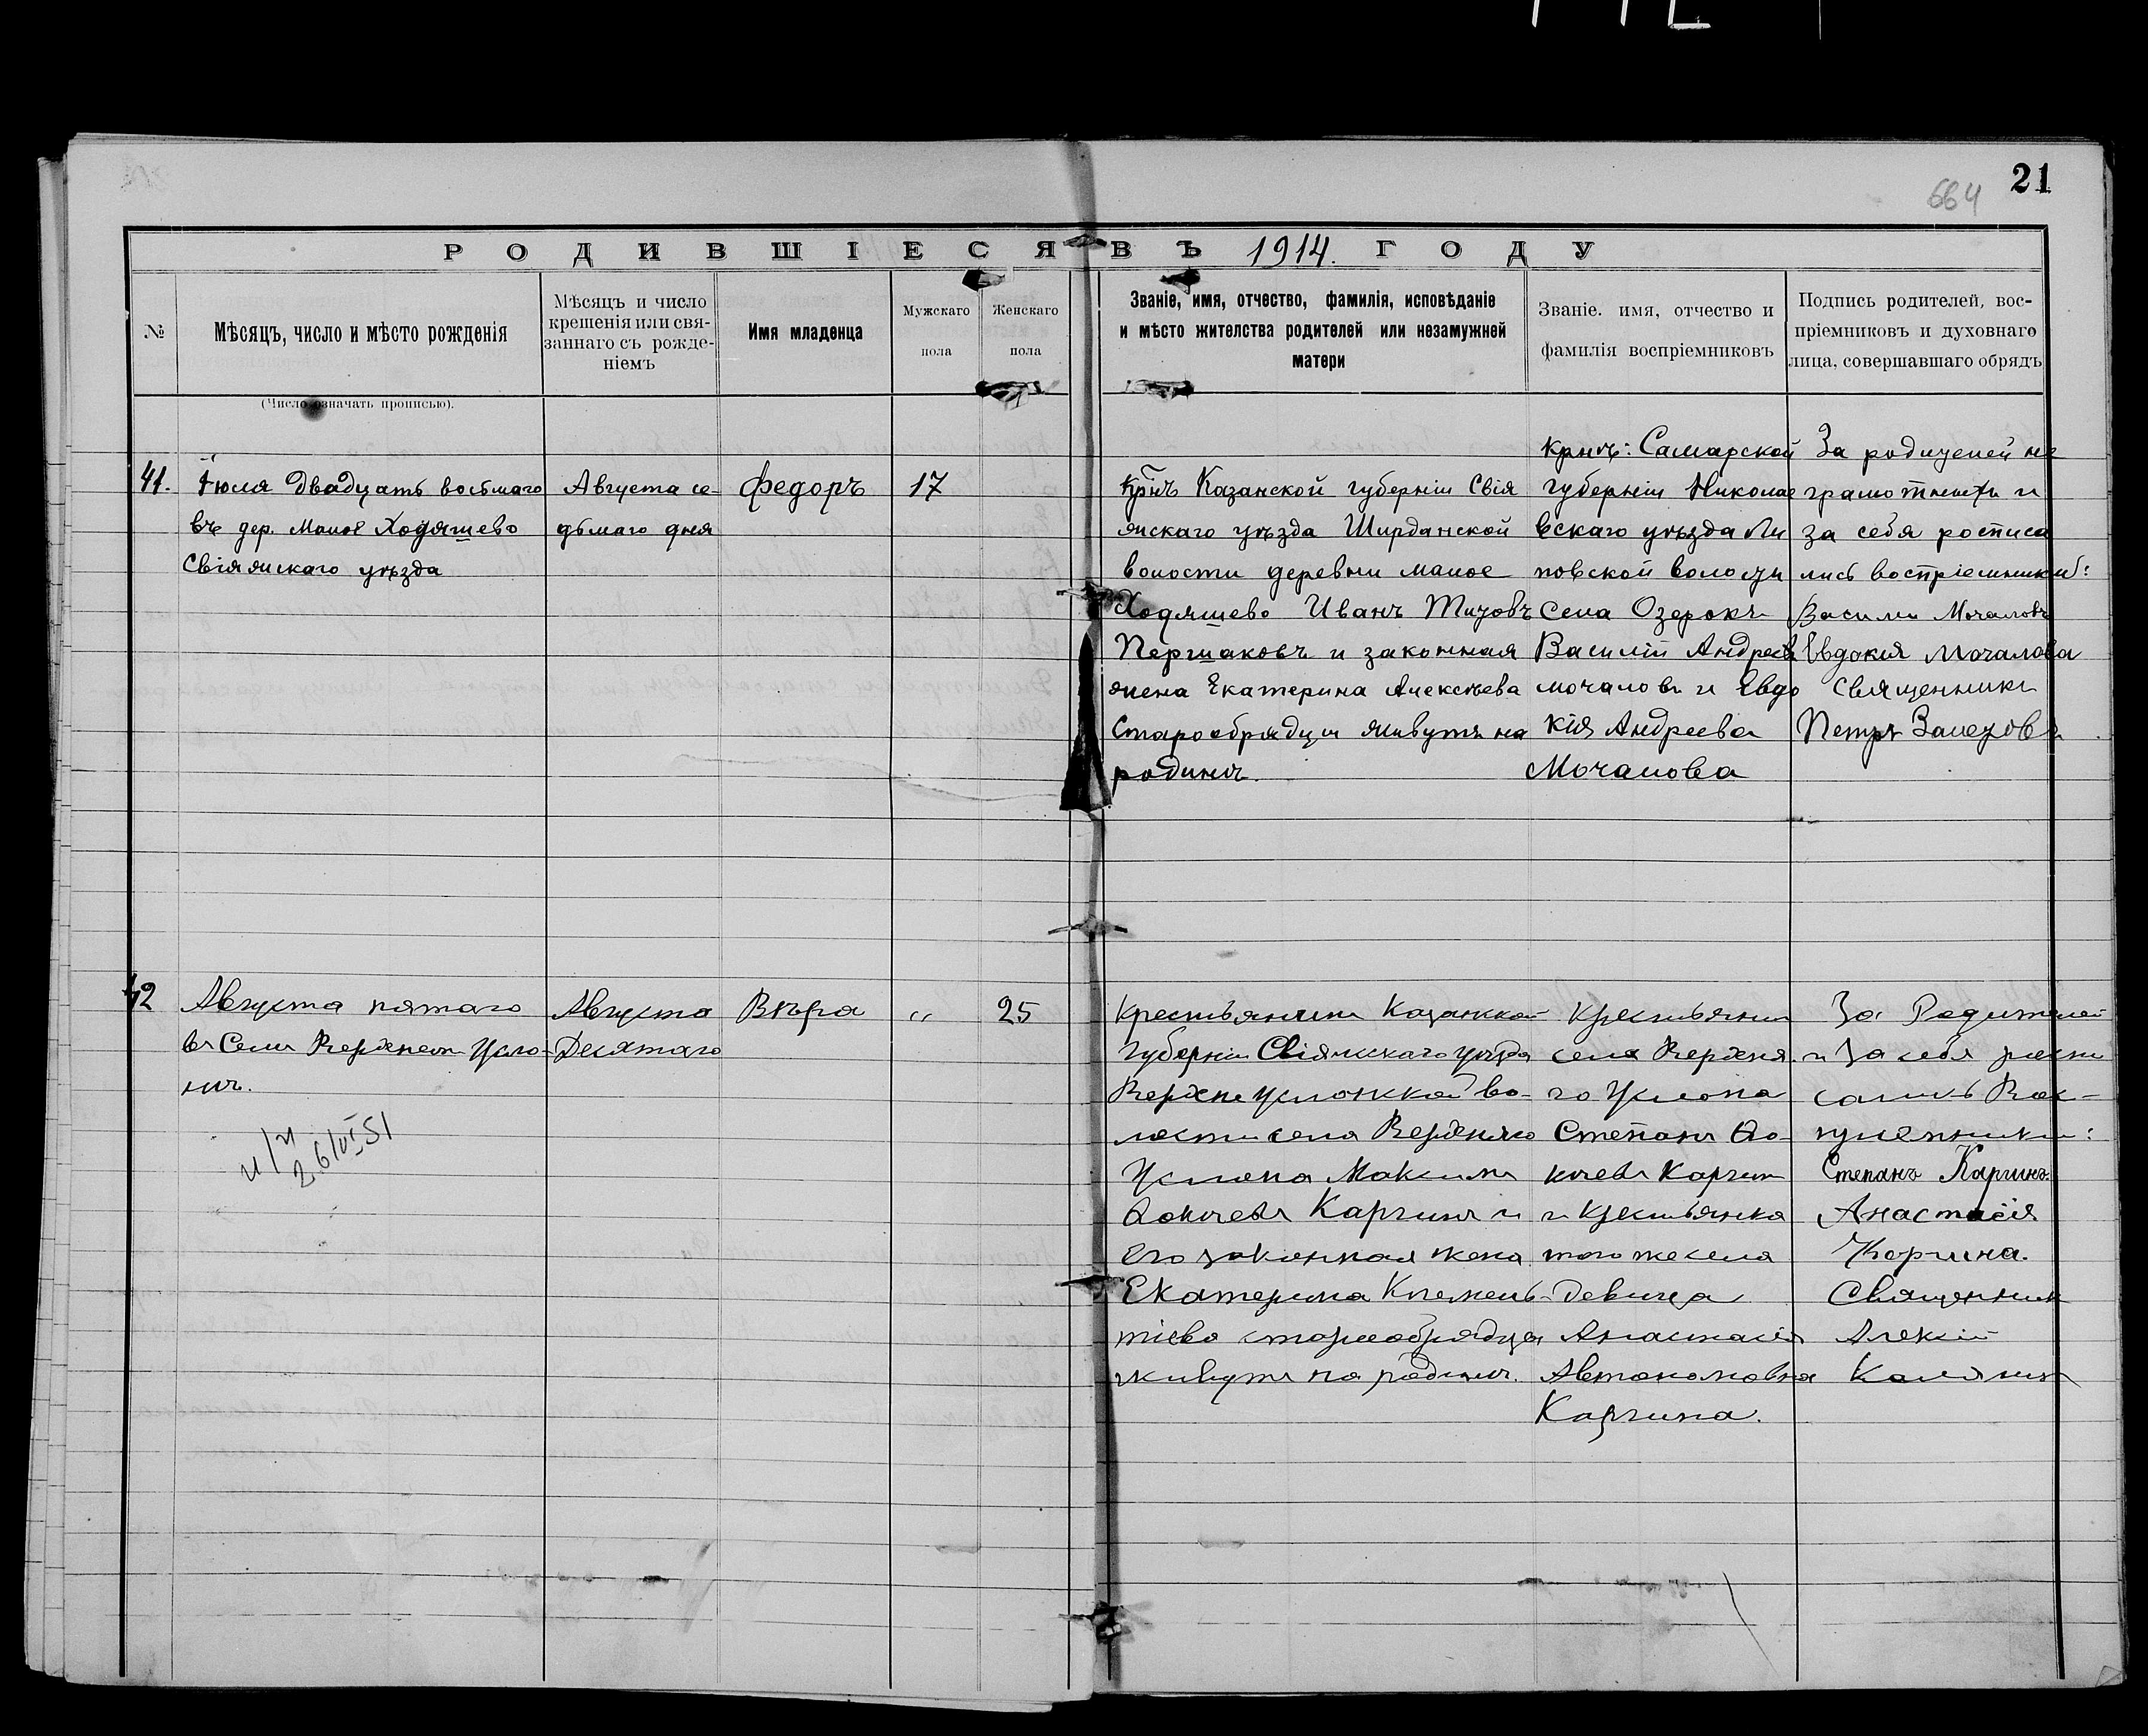 21
664
РОДИВШІЕСЯ ВЪ 1914. ГОДУ
№
Мѣсяцъ, число и мѣсто рожденія
Мѣсяцъ и число
крешенія или свя-
заннаго съ рожде-
ніемъ
Имя младенца
Мужскаго
пола
Женскаго
пола
Званіе, имя, отчество, фамилія, исповѣданіе
и мѣсто жителства родителей или незамужней
матери
Званіе. имя, отчество и
фамилія воспріемниковъ
Подпись родителей, вос-
пріемниковъ и духовнаго
лица, совершавшаго обрядъ
(Число означать прописью).
41.
Іюля двадцать восьмаго
въ дер. Малое Ходяшево
Свіяжскаго уѣзда
Августа се-
дьмаго дня
Федоръ
17
Крнъ Казанской губерніи Свія
жскаго уѣзда Ширданской
волости деревни малое
Ходяшево Иванъ Титовъ
Першаковъ и законная
жена Екатерина Алексѣева
Старообрядцы живутъ на
родинѣ.
крнъ: Самарской
губерніи Николае
вскаго уѣзда Ли
повской волости
Села Озерокъ
Василій Андреевъ
мочаловъ и Евдо
кія Андреева
Мочалова
За родителей не
грамотныхъ и
за себя росписа
лись воспріемники:
Василий Мочаловъ
Евдокия Мочалова
Священникъ
Петръ Залетовъ
42
Августа пятаго
въ Селе Верхнем Усло-
нѣ.
Августа
Десятаго
Вѣра
"
25
Крестьянинъ Казанской
Губерніи Свіяжскаго уѣзда
Верхне Услонской во-
лости села Верхняго
Услона Максимъ
Фокѣевъ Каргинъ и
его законная жена
Екатерина Климень-
тіева старообрядцы
живутъ на родинѣ.
Крестьянин
села Верхня-
го Услона
Степанъ Фо-
кѣевъ Каргин
и крестьянка
того же села
девица
Анастасія
Автономовна
Каргина.
За Родителей
и За себя распи
сались Вос-
приемники:
Степанъ Каргинъ.
Анастасія
Каргина.
Священник
Алексій
Калягин
26/VI 51